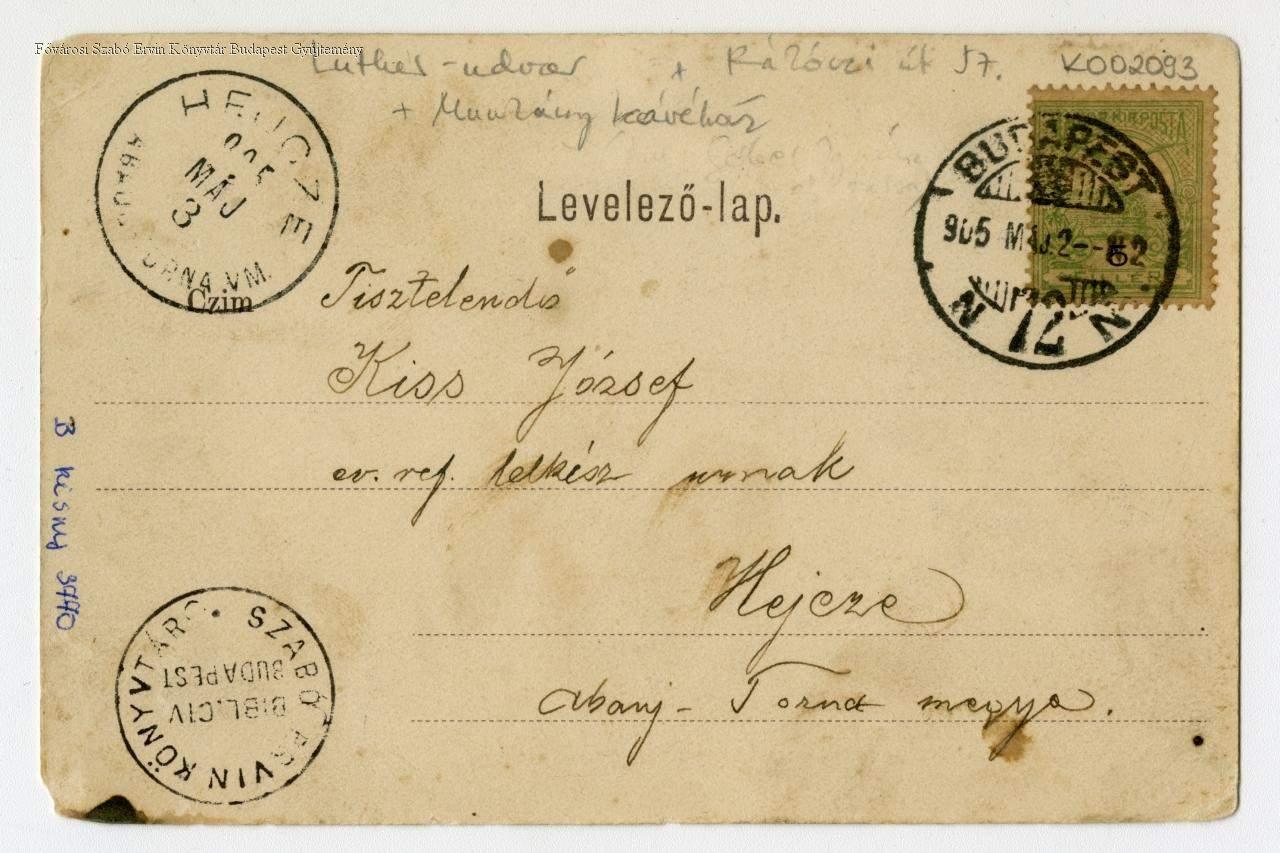 Fővárosi Szabó Ervin Könyvtár Budapest Gyűjtemény
Luther-udvar + Rákóczi út 57. K002093
+ kávéház
HEJCZE
905
MÁJ
3
ABAUJ TORNA VM.
BUDAPEST
905 MÁJ 2
72
N N
KIR. POSTA
Levelező-lap.
Czim
Tisztelendő
Kiss József
ev. ref. lelkész urnak
Hejcze
Abauj-Torna megye.
B kisny 3440
SZABÓ ERVIN KÖNYVTÁR
BIBL. CIV
BUDAPEST